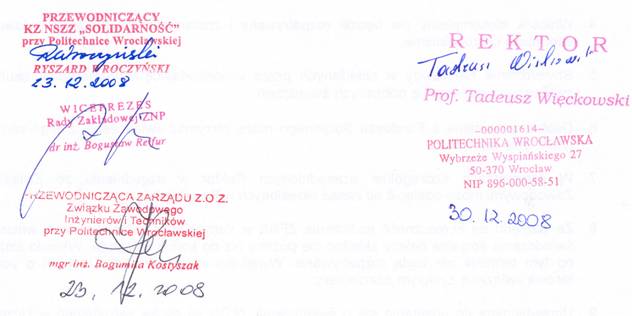 PRZEWODNICZĄCY
KZ NSZZ „SOLIDARNOŚĆ"
przy Politechnice Wrocławskiej
RYSZARD WROCZYŃSKI
23.12.2008
WICEPREZES
Rady Zakładowej ZNP
dr inż. Bogusław Reifur
PRZEWODNICZĄCA ZARZĄDU Z.O Z.
Związku Zawodowego
Inżynierów i Techników
przy Politechnice Wrocławskiej
mgr inż. Bogumiła Kostyszak
23, 12. 2008
REKTOR
Tadeusz Więckowski
Prof. Tadeusz Więckowski
-000001614-
POLITECHNIKA WROCŁAWSKA
Wybrzeże Wyspiańskiego 27
50-370 Wrocław
NIP 896-000-58-51
30.12.2008